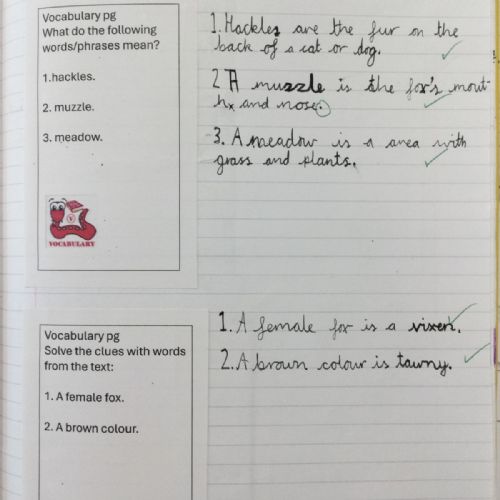 Vocabulary pg
What do the following
words/phrases mean?
1.hackles.
2. muzzle.
3. meadow.
V
VOCABULARY
1. Hackles are the fur on the
back of a cat or dog.
2 A muzzle is the fox's mout-
hx and nose.
3. A meadow is a area with
grass and plants.
Vocabulary pg
Solve the clues with words
from the text:
1. A female fox.
2. A brown colour.
1. A female fox is a vixen.
2. A brown colour is tawny.